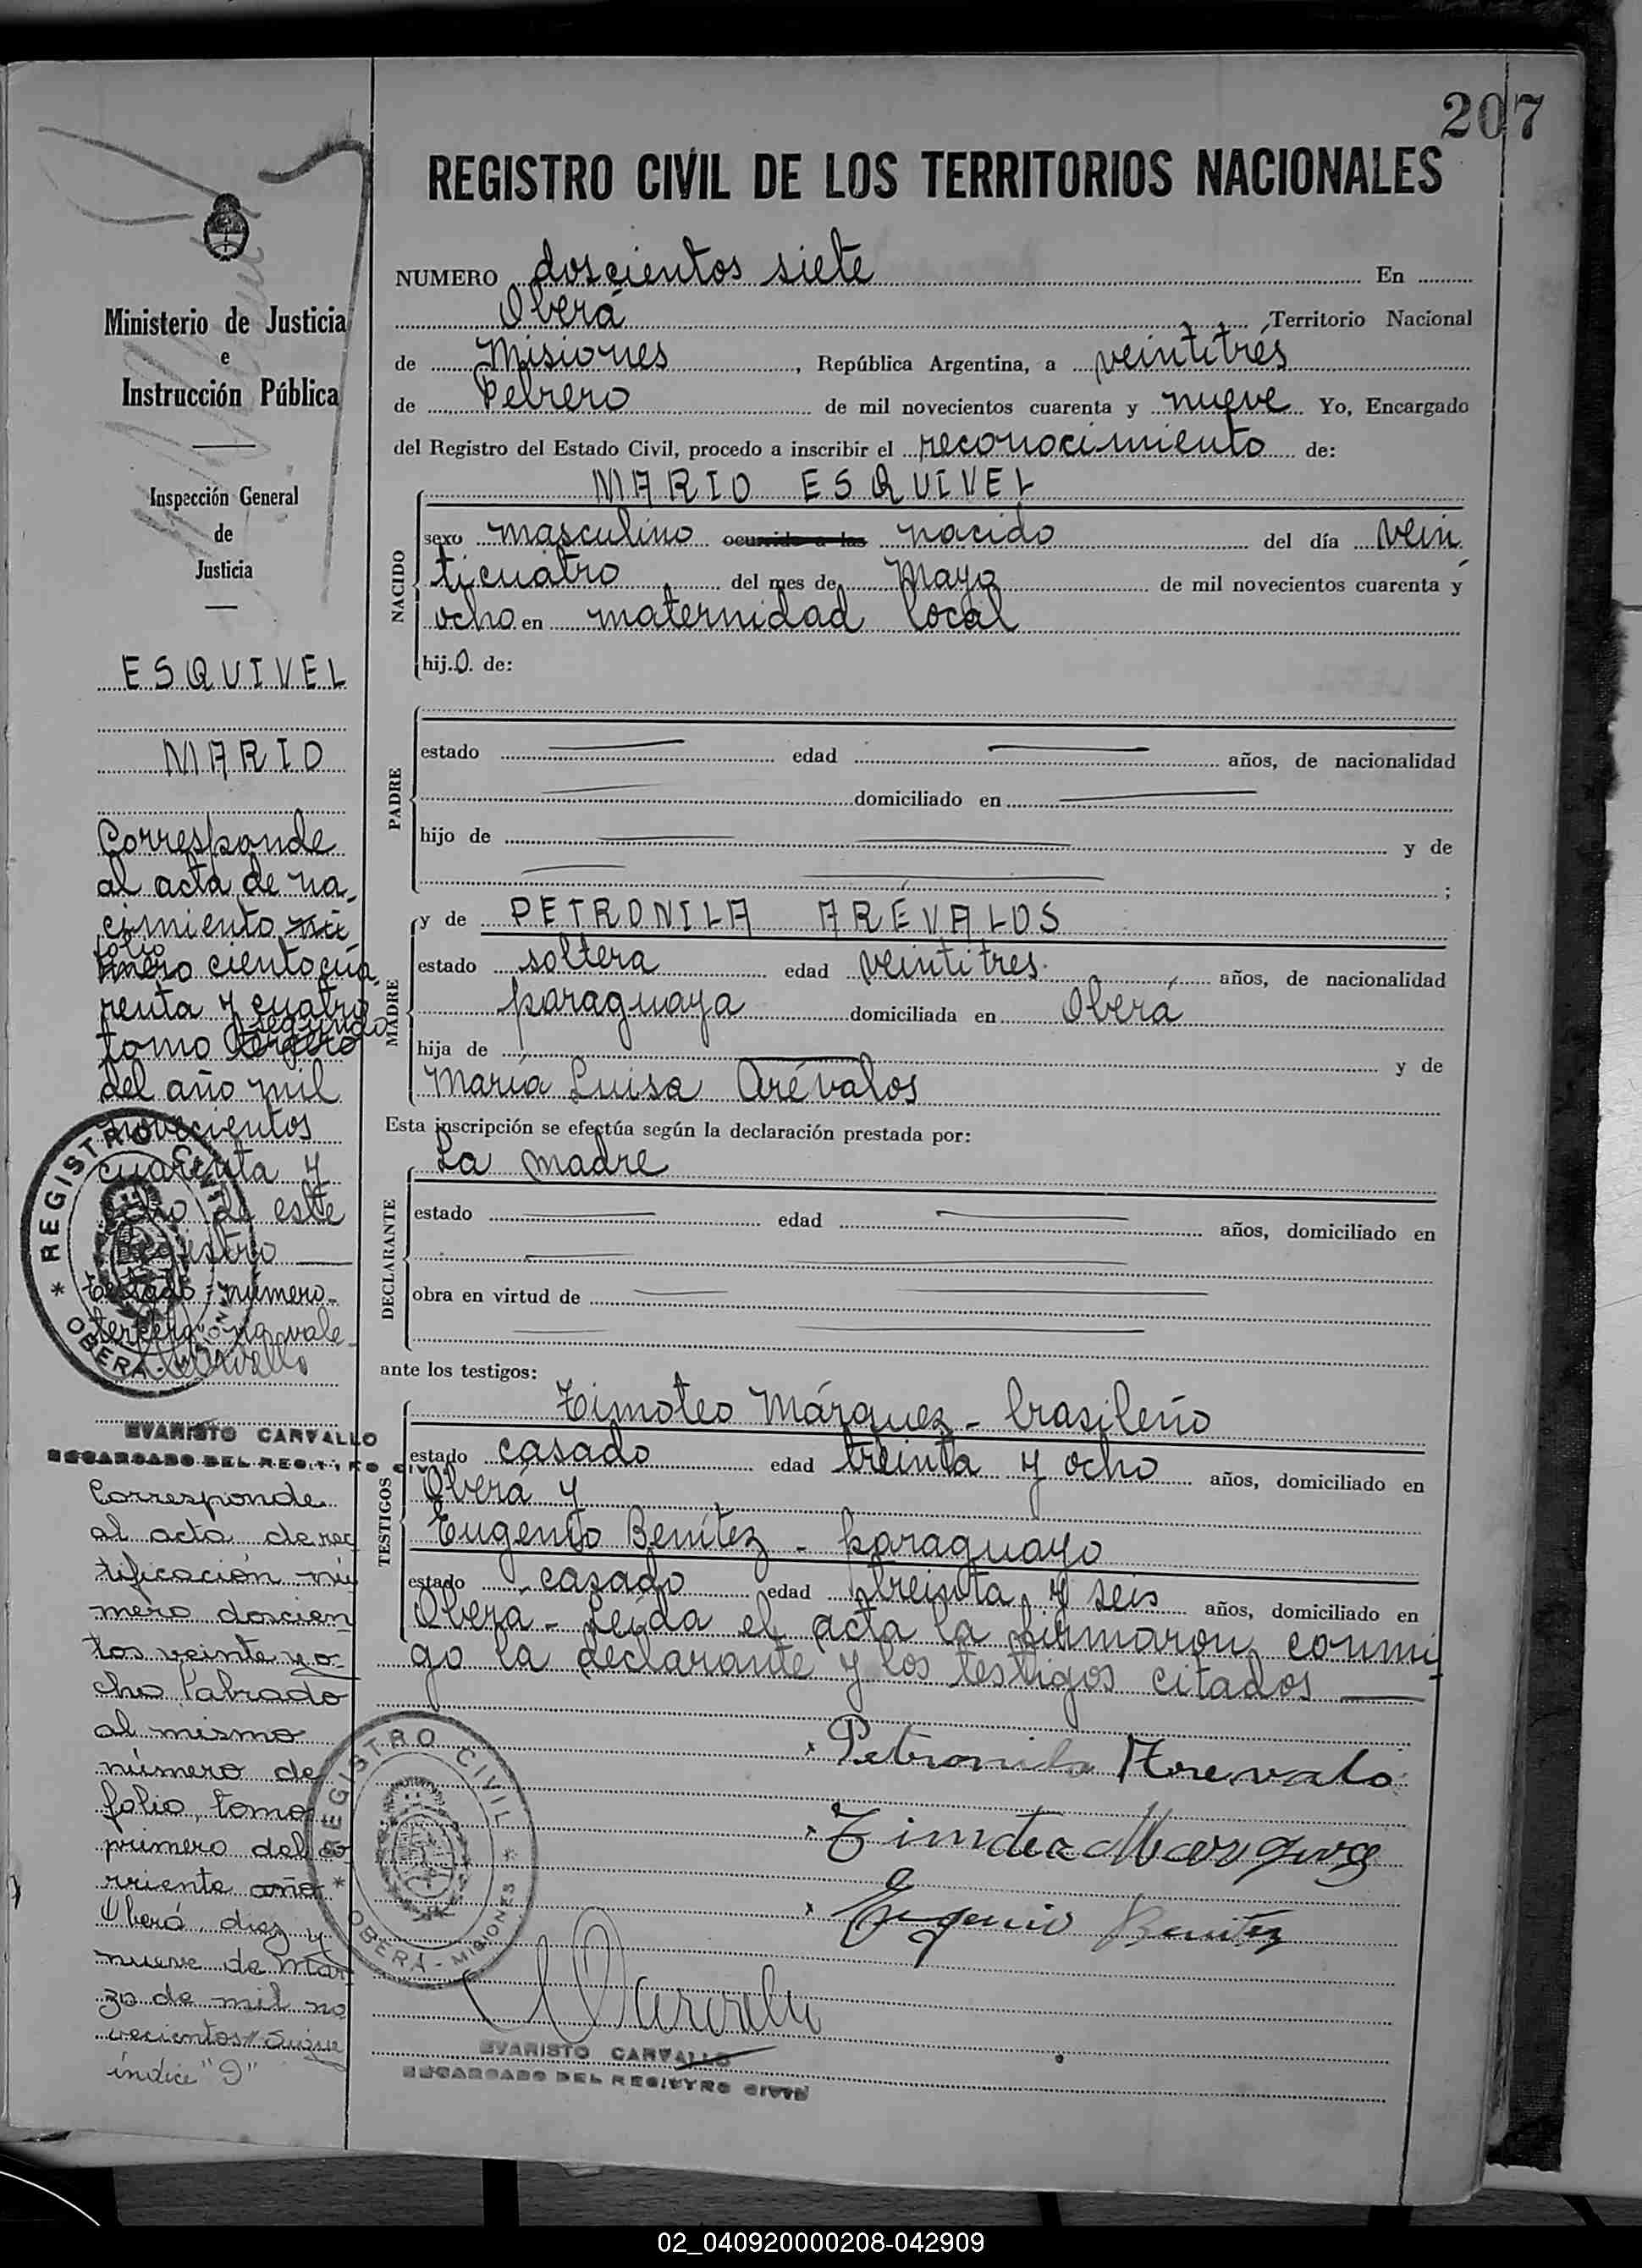 207
REGISTRO CIVIL DE LOS TERRITORIOS NACIONALES
NUMERO doscientos siete En
Oberá Territorio Nacional
de Misiones, República Argentina, a veintitrés
de Febrero de mil novecientos cuarenta y nueve Yo, Encargado
del Registro del Estado Civil, procedo a inscribir el reconocimiento de:
NACIDO
MARIO ESQUIVEL
sexo masculino ocurrido a las nacido del día vein
ticuatro del mes de Mayo de mil novecientos cuarenta y
ocho en maternidad local
hijo de:
PADRE
estado edad años, de nacionalidad
domiciliado en
hijo de y de
;
MADRE
y de PETRONILA AREVALOS
estado soltera edad veintitres años, de nacionalidad
paraguaya domiciliada en Oberá
hija de y de
María Luisa Arévalos
Esta inscripción se efectúa según la declaración prestada por:
DECLARANTE
La madre
estado edad años, domiciliado en
obra en virtud de
ante los testigos:
TESTIGOS
Timoteo Márquez - brasileño
estado casado edad treinta y ocho años, domiciliado en
Oberá y
Eugenio Benítez - paraguayo
estado casado edad treinta y seis años, domiciliado en
Oberá - Leída el acta la firmaron conmi
go la declarante y los testigos citados
Petronila Arevalo
Timoteo Marquez
Eugenio Benitez
REGISTRO CIVIL
OBERÁ - MISIONES
EVARISTO CARVALLO
ENCARGADO DEL REGISTRO CIVIL
Ministerio de Justicia
e
Instrucción Pública
Inspección General
de
Justicia
ESQUIVEL
MARIO
Corresponde
al acta de na
cimiento nú
folio
mero ciento cua
renta y cuatro
segundo
tomo tercero
del año mil
novecientos
cuarenta y
ocho de este
registro
Testado: número
tercero: no vale
Carvallo
REGISTRO CIVIL
OBERÁ
EVARISTO CARVALLO
ENCARGADO DEL REGISTRO CIVIL
Corresponde
al acta de rec
tificación nú
mero doscien
tos veinte y o
cho labrado
al mismo
número de
folio, tomo
primero del co
rriente año
Oberá, diez y
nueve de Mar
zo de mil no
vecientos // Sigue
índice "D"
02_040920000208-042909